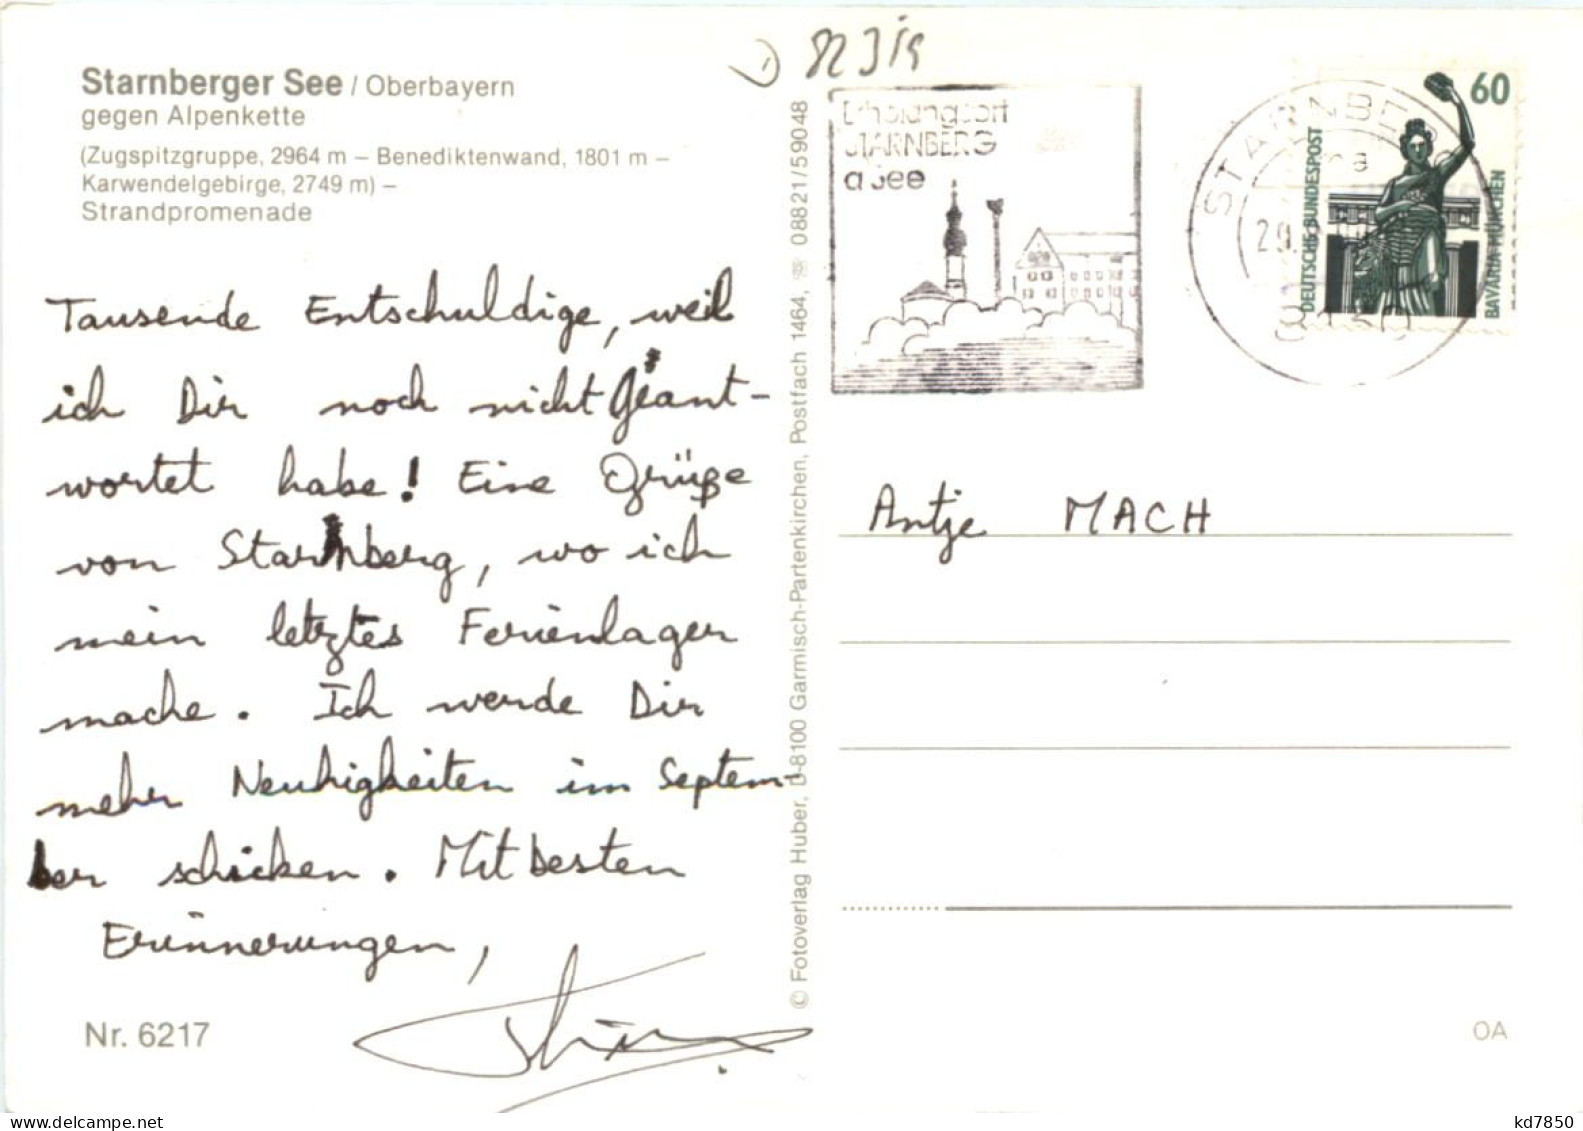 Starnberger See / Oberbayern
gegen Alpenkette
(Zugspitzgruppe, 2964 m – Benediktenwand, 1801 m –
Karwendelgebirge, 2749 m) –
Strandpromenade
Tausende Entschuldige, weil
ich Dir noch nicht geant-
wortet habe! Eine Grüße
von Starnberg, wo ich
mein letztes Ferienlager
mache. Ich werde Dir
mehr Neuhigkeiten im Septem-
ber schicken. Mit besten
Erinnerungen,
Nr. 6217
© Fotoverlag Huber, D-8100 Garmisch-Partenkirchen, Postfach 1464, ☏ 08821/59048
Erholungsort
STARNBERG
a See
STARNBERG
29.
60
DEUTSCHE BUNDESPOST
BAVARIA MÜNCHEN
Antje MACH
OA
www.delcampe.net
kd7850